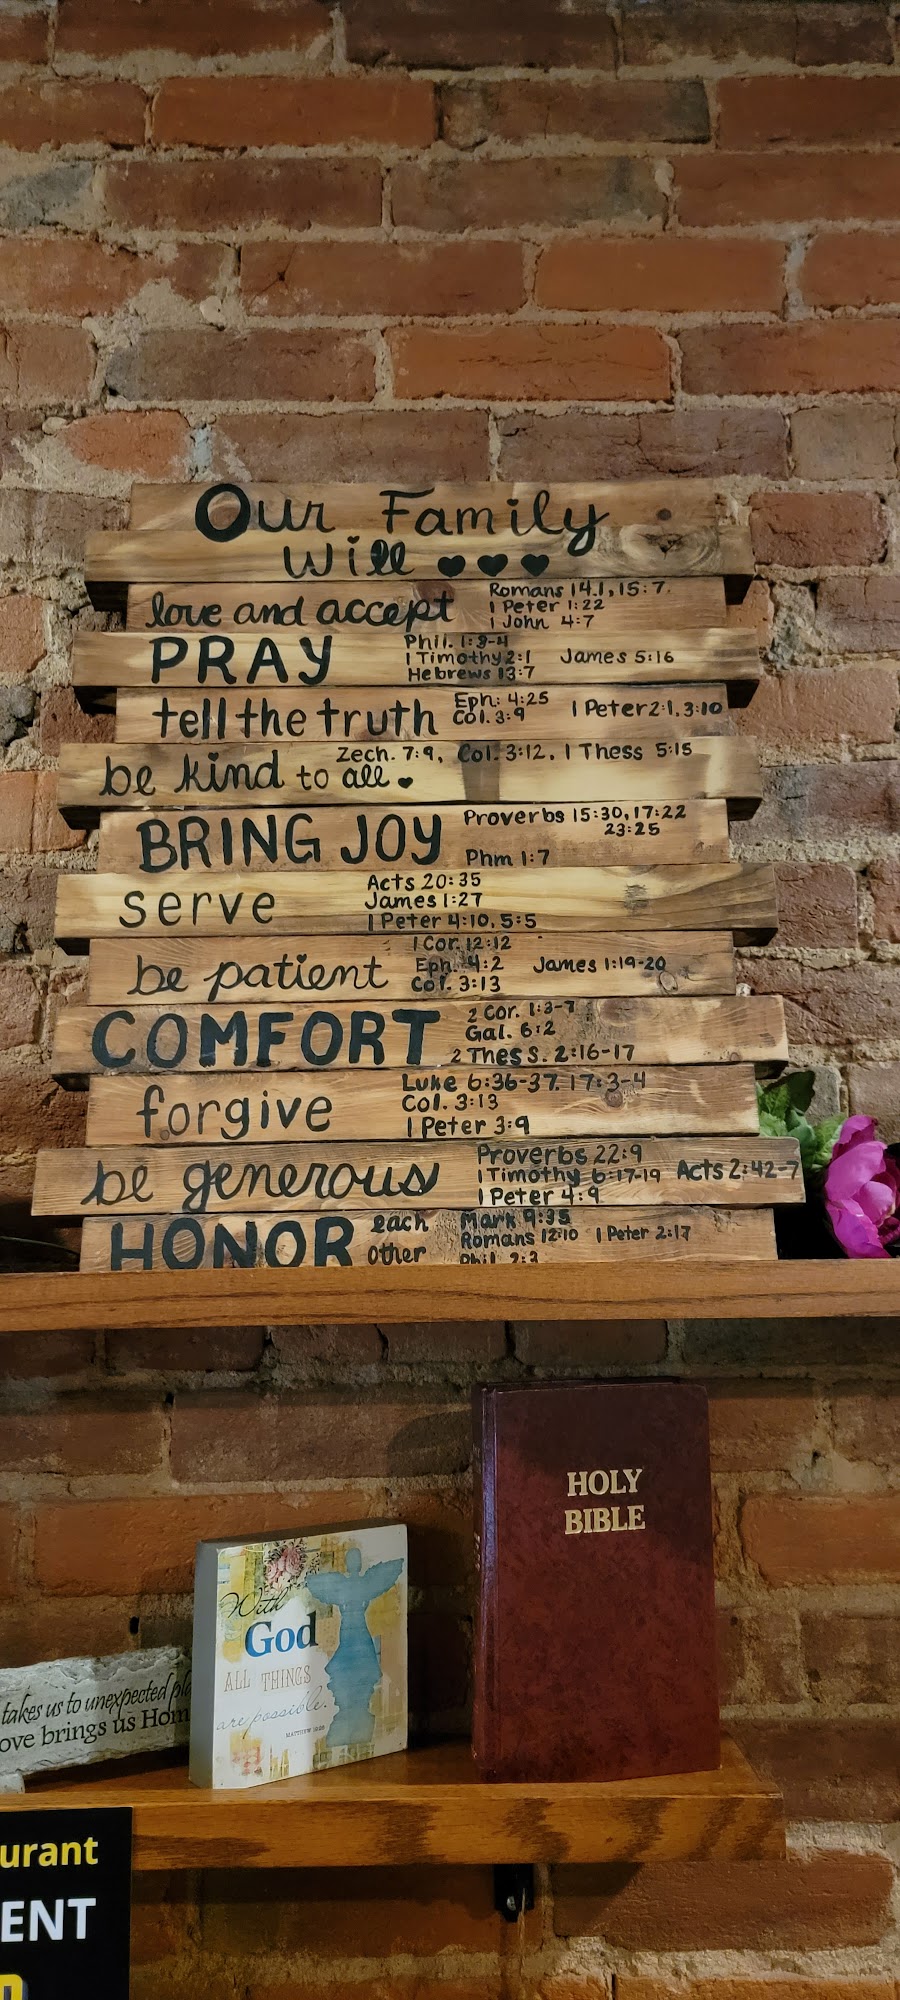 Our Family
Will
love and accept
Romans 14.1, 15:7.
1 Peter 1:22
1 John 4:7
PRAY
Phil. 1:3-4
1 Timothy 2:1 James 5:16
Hebrews 13:7
tell the truth
Eph: 4:25
Col. 3:9 1 Peter 2:1, 3:10
be kind to all
Zech. 7:9, Col. 3:12, 1 Thess 5:15
BRING JOY
Proverbs 15:30, 17:22
23:25
Phm 1:7
serve
Acts 20:35
James 1:27
1 Peter 4:10, 5:5
be patient
1 Cor. 12:12
Eph. 4:2 James 1:19-20
Col. 3:13
COMFORT
2 Cor. 1:3-7
Gal. 6:2
2 Thess. 2:16-17
forgive
Luke 6:36-37, 17:3-4
Col. 3:13
1 Peter 3:9
be generous
Proverbs 22:9
1 Timothy 6:17-19 Acts 2:42-7
1 Peter 4:9
HONOR each
other
Mark 9:35
Romans 12:10 1 Peter 2:17
Phil. 2:3
HOLY
BIBLE
With
God
ALL THINGS
are possible.
MATTHEW
takes us to unexpected
ove brings us Hom
urant
ENT